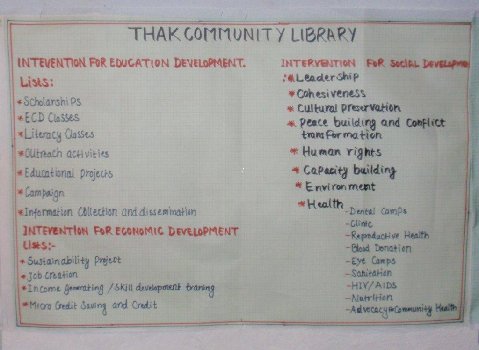 THAK COMMUNITY LIBRARY
INTEVENTION FOR EDUCATION DEVELOPMENT.
Lists:
* Scholarships
* ECD Classes
* Literacy Classes
* Outreach activities
* Educational Projects
* Campaign
* Information Collection and dissemination
INTEVENTION FOR ECONOMIC DEVELOPMENT
Lists:-
* Sustainability Project
* Job Creation
* Income generating / Skill development traning
* Micro Credit Saving and Credit
INTERVENTION FOR SOCIAL DEVELOPMEN
* Leadership
* Cohesiveness
* Cultural preservation
* Peace building and Conflict
transformation
* Human rights
* Capacity building
* Environment
* Health
- Dental Camps
- Clinic
- Reproductive Health
- Blood Donation
- Eye Camps
- Sanitation
- HIV/AIDS
- Nutrition
- Advocacy for Community Health